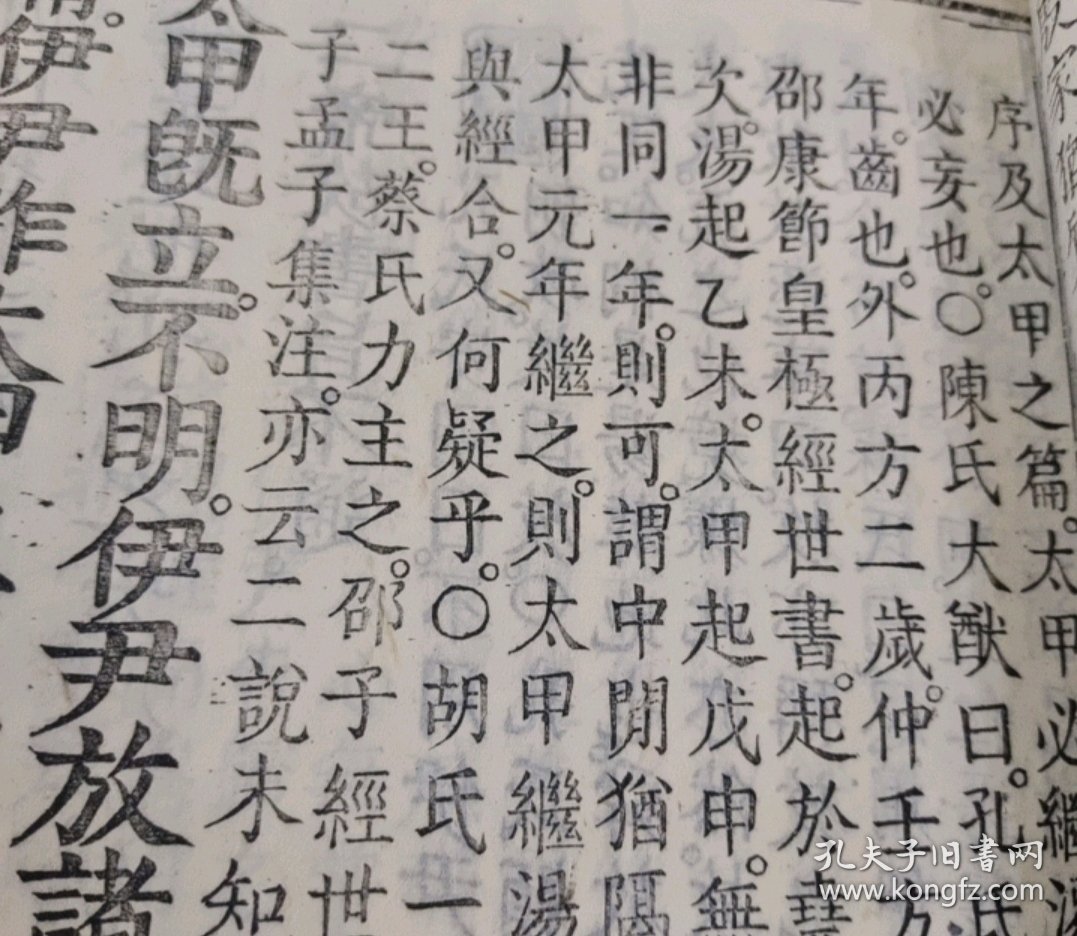 序及太甲之篇。太甲必繼湯
必妄也。○陳氏大猷曰。孔氏
年。齒也。外丙方二歲。仲壬方
邵康節皇極經世書。起於堯
次。湯起乙未。太甲起戊申。無
非同一年。則可。謂中閒猶隔
太甲元年繼之。則太甲繼湯
與經合。又何疑乎。○胡氏一
二王。蔡氏力主之。邵子經世
子孟子集注。亦云二說未知
太甲旣立。不明。伊尹放諸
伊尹作太甲
孔夫子旧書网
www.kongfz.com